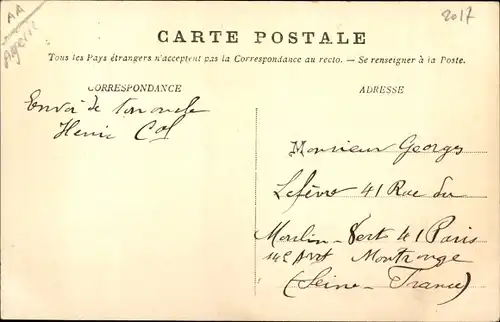 AA
Algérie
2017
CARTE POSTALE
Tous les Pays étrangers n'acceptent pas la Correspondance au recto. — Se renseigner à la Poste.
CORRESPONDANCE
Envoi de ton oncle
Henri
ADRESSE
Monsieur Georges
Lefèvre 41 Rue du
Moulin-Vert 41 Paris
14e Arrt Montrouge
(Seine-France)